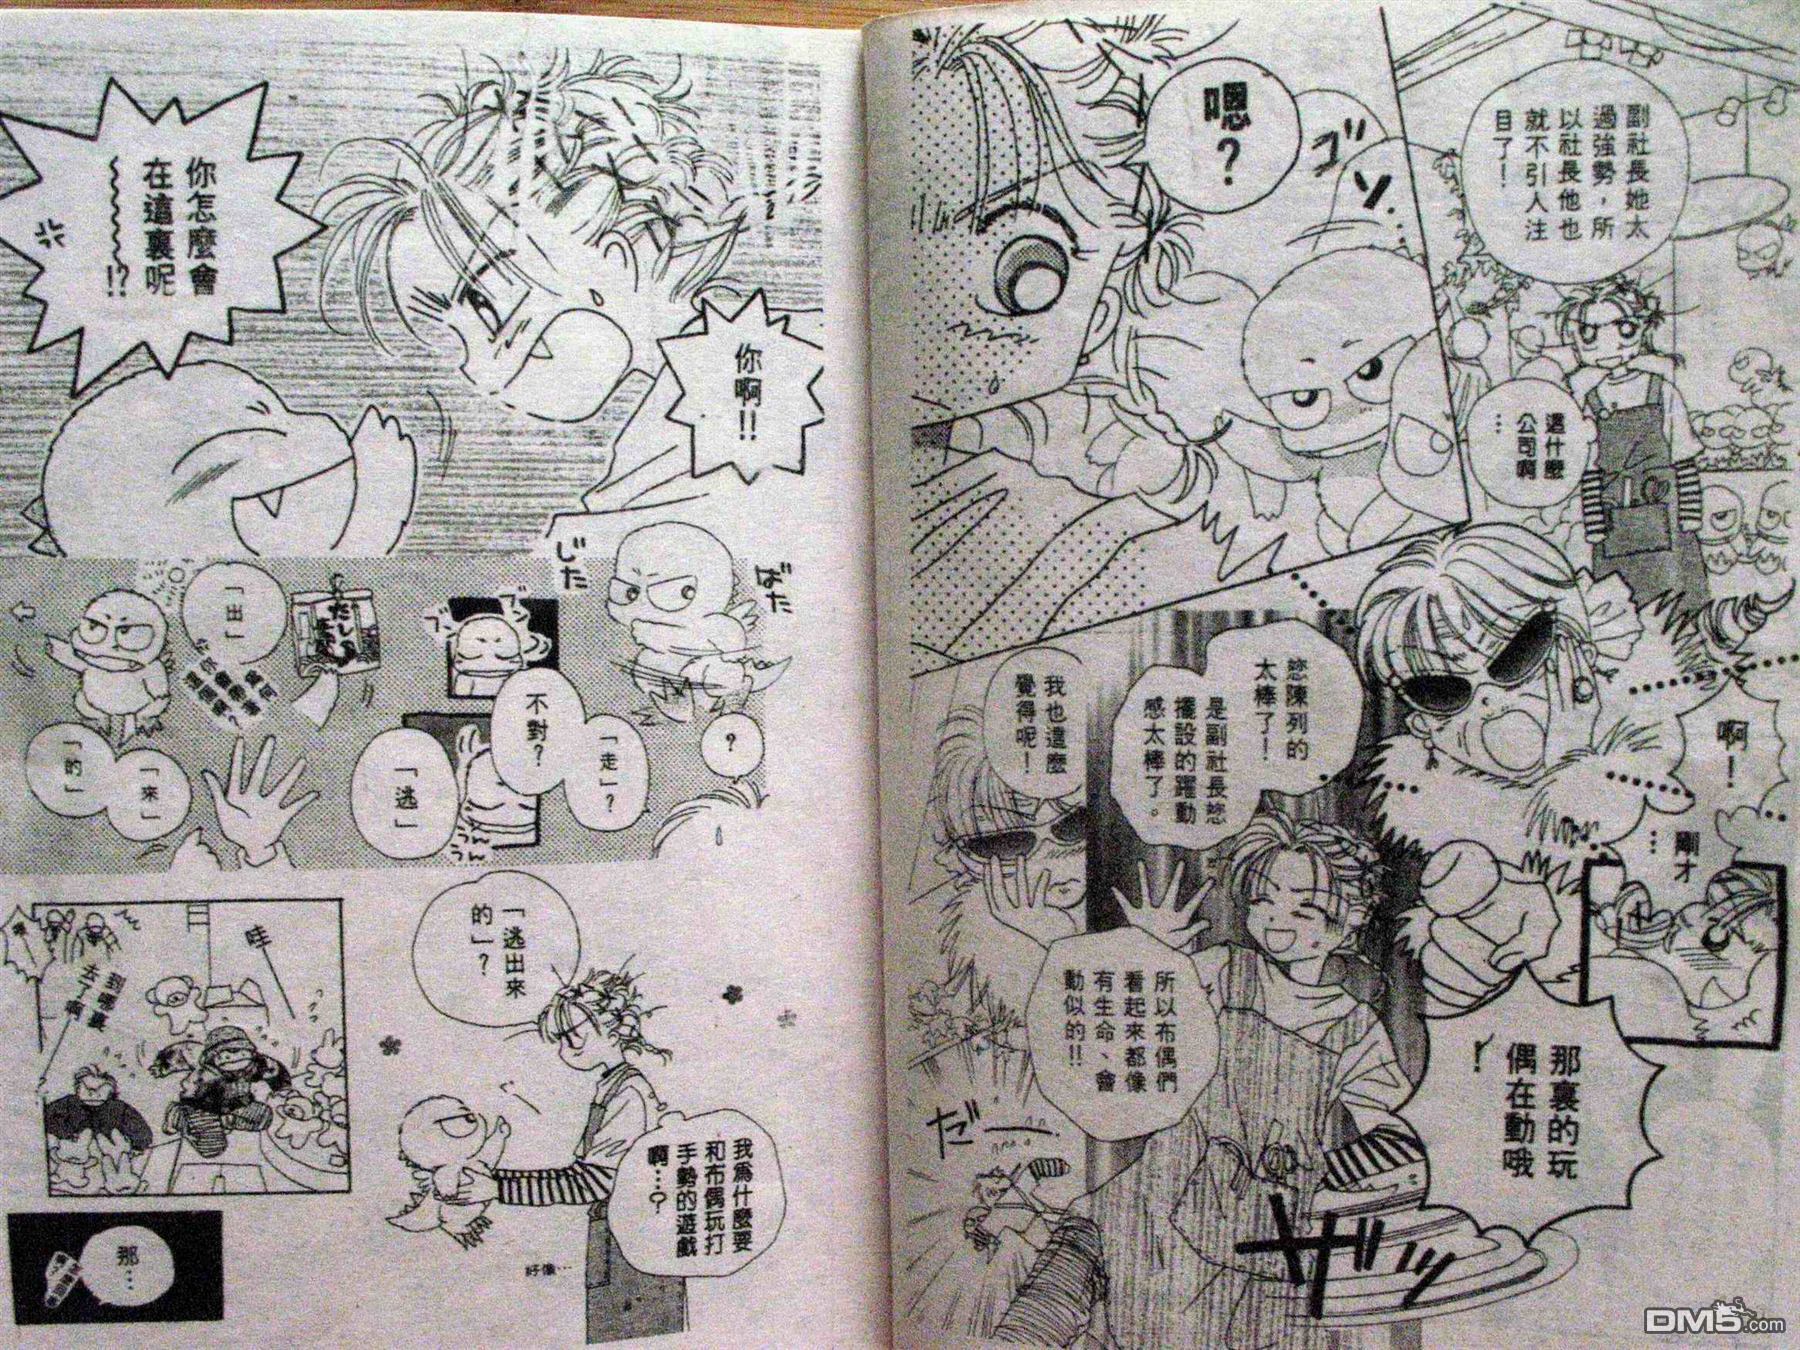 副社長她太
過強勢，所
以社長他也
就不引人注
目了！
這什麼
公司啊
…
嗯？
ゴソ…
啊！
剛才
…
那裏的玩
偶在動哦
！
您陳列的
太棒了！
是副社長您
擺設的躍動
感太棒了。
我也這麼
覺得呢！
所以布偶們
看起來都像
有生命、會
動似的!!
ザッ
だーっ
你啊!!
你怎麼會
在這裏呢
!?
じた
ばた
？
「走」？
不對？
うんうん
「逃」
「出」
「來」
「的」
「逃出來
的」？
我為什麼要
和布偶玩打
手勢的遊戲
啊…？
好像…
哇
到哪裏
去了啊
那…
DM5.com